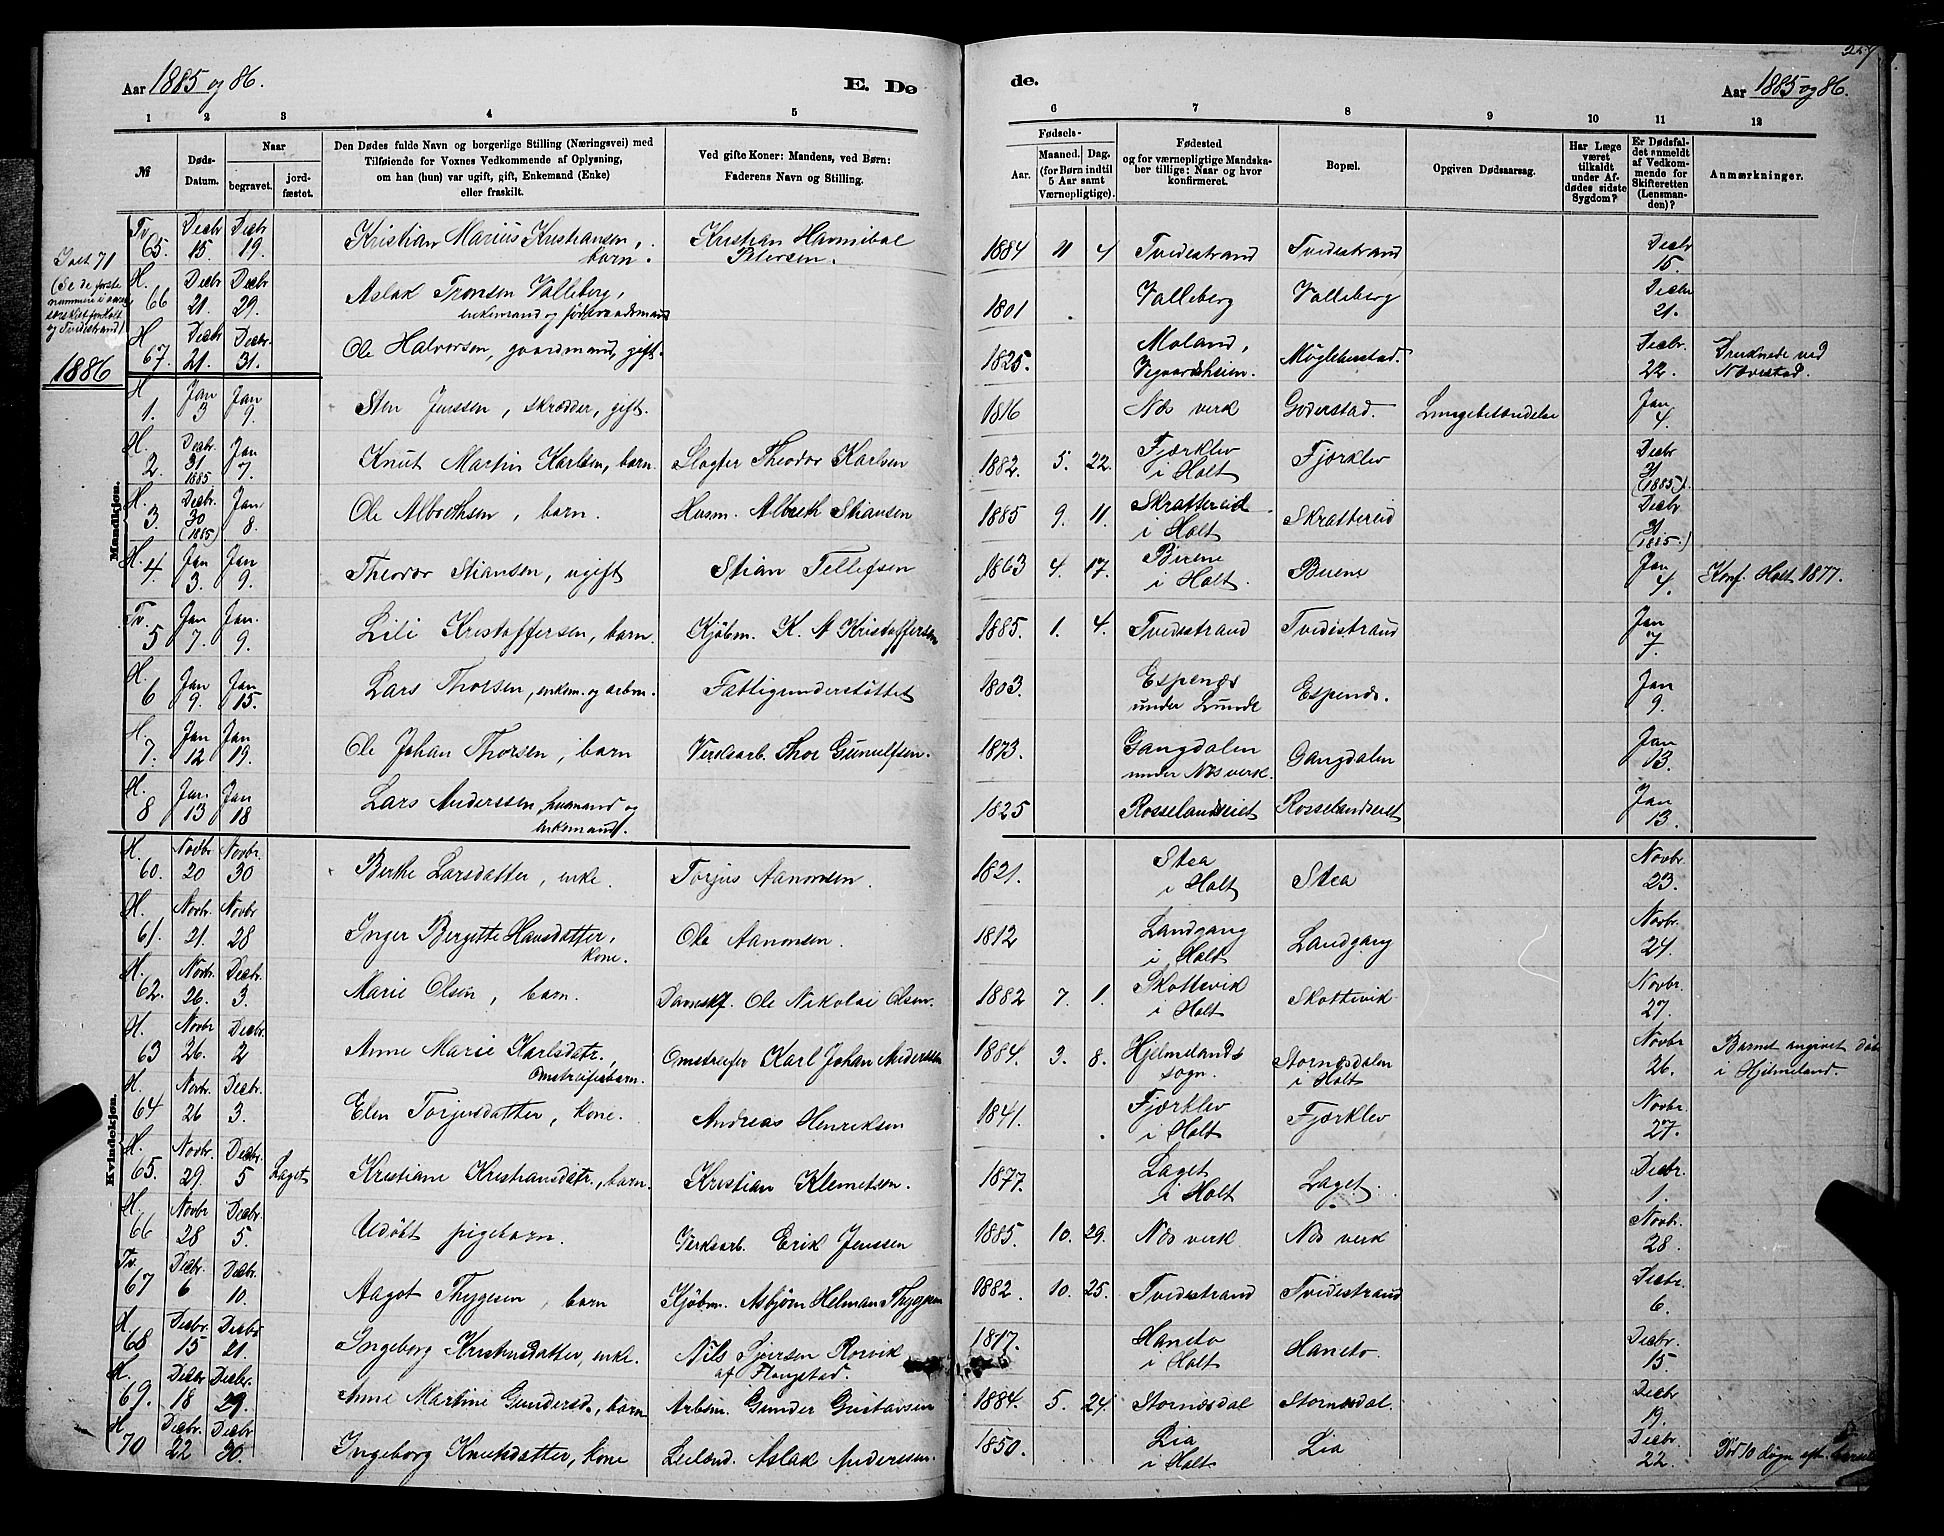 257
Aar 1885 og 86.
E. Dø
de.
Aar 1885 og 86.
1 2 3 4 5
6 7 8 9 10 11 12
№
Døds-Datum.
Naar
begravet.
jordfæstet.
Den Dødes fulde Navn og borgerlige Stilling (Næringsvei) med
Tilføiende for Voxnes Vedkommende af Oplysning,
om han (hun) var ugift, gift, Enkemand (Enke)
eller fraskilt.
Ved gifte Koner: Mandens, ved Børn:
Faderens Navn og Stilling.
Fødsels-
Aar.
Maaned. Dag.
(for Børn indtil
5 Aar samt
Værnepligtige).
Fødested
og for værnepligtige Mandskaber tillige: Naar og hvor
konfirmeret.
Bopæl.
Opgiven Dødsaarsag.
Har Læge
været
tilkaldt
under Afdødes sidste
Sygdom?
Er Dødsfaldet anmeldt
af Vedkommende for
Skifteretten
(Lensmanden)?
Anmærkninger.
Mandkjøn.
Ialt 71
(Se de første
nummere i aaret
særskilt for Holt
og Tvedestrand)
1886
Tv. 65. Decbr 15. Decbr 19. Kristian Marius Kristiansen, barn. Kristian Hannibal Petersen. 1884 11 4 Tvedestrand Tvedestrand Decbr 15.
H. 66 Decbr 21. Decbr 29. Aslak Tronsen Valleberg, enkemand og føderaadsmand 1801 Valleberg Valleberg Decbr 21.
H 67. Decbr 21. Decbr. 31. Ole Halvorsen, gaardmand, gift. 1825. Moland, Vegaardsheien. Møglebustad. Decbr. 22. Druknede ved Nævestad.
H 1. Jan 3 Jan 9. Sten Jenssen, skrædder, gift. 1816 Næs verk Goderstad. Lungebetændelse Jan 4.
H. 2. Decbr. 31 1885 Jan 7. Knut Martin Karlsen, barn. Slagter Theodor Karlsen 1882. 5. 22. Fjærklev i Holt Fjærklev Decbr 31 (1885).
H 3. Decbr. 30 (1885) Jan 8. Ole Albrethsen, barn. Husm. Albreth Stiansen 1885 9. 11. Skrattereid i Holt Skrattereid Decbr 31 (1885.)
H. 4. Jan 3. Jan 9. Theodor Stiansen, ugift Stian Tellefsen 1863 4. 17. Biene i Holt. Biene Jan 4. Konf. Holt 1877.
Tv. 5 Jan 7. Jan. 9. Lili Kristoffersen, barn. Kjøbm. K. A Kristoffersen 1885. 1. 4. Tvedestrand Tvedestrand Jan 7.
H. 6 Jan 9. Jan 15. Lars Thorsen, enkem. og arbm. Fattigunderstøttet 1803. Espenæs under Lunde Espenæs. Jan 9.
H. 7. Jan 12 Jan 19. Ole Johan Thorsen, barn Verksarb. Thor Gunulfsen. 1873 Gangdalen under Næs verk. Gangdalen Jan 13.
H. 8 Jan 13 Jan 18 Lars Anderssen, husmand og enkemand. 1825 Rosselandseiet Rosselandseiet Jan 13.
Kvindekjøn.
H. 60. Novbr 20 Novbr. 30 Berthe Larsdatter, enke. Torjus Aanonsen. 1821. Stea i Holt Stea Novbr. 23.
H. 61. Novbr. 21. Novbr 28 Inger Bergitte Hansdatter, kone. Ole Aanonsen. 1812 Landgang i Holt Landgang Novbr. 24.
H. 62. Novbr. 26. Decbr. 3. Marie Olsen, barn. Ole Nikolai Olsen. 1882 7. 1. Skottevik i Holt Skottevik Novbr. 27.
H. 63 Novbr 26. Decbr. 2 Anne Marie Karlsdatr., Omstreiferbarn. Omstreifer Karl Johan Andersen 1884. 3. 8. Hjelmelands sogn. Stornæsdalen i Holt Novbr 26. Barnet angivet døbt i Hjelmeland.
H. 64 Novbr. 26 Decbr. 3. Elen Torjusdatter, kone. Andreas Henriksen 1841. Fjærklev i Holt Fjærklev Novbr 27.
H. 65. Novbr. 29. Decbr. 5 Laget Kristiane Kristiansdatr., barn. Kristian Klemetsen. 1877. Laget i Holt Laget. Decbr. 1.
H 66 Novbr 28 Decbr. 5. Udøbt pigebarn. Verksarb. Erik Jenssen 1885. 10. 29. Næs verk. Næs verk Novbr. 28.
Tv. 67 Decbr. 6 Decbr. 10. Aagot Thygesen, barn Kjøbm. Asbjørn Helman Thygesen 1882. 10. 25. Tvedestrand Tvedestrand Decbr. 6.
H. 68 Decbr. 15 Decbr 21. Ingeborg Kristensdatter, enke. Nils Rørvik 1817. Haneto i Holt Haneto. Decbr. 15
H. 69. Decbr 18 Decbr. 29. Anne Martine Gundersd., barn Arbm. Gunder Gustavsen 1884. 5. 24. Stornæsdal Stornæsdal. Decbr 19.
H 70 Decbr. 22 Decbr 30. Ingeborg Knutsdatter, kone Leilænd. Aslak Anderssen. 1850. Lia i Holt Lia Decbr 22. Død 10 døgn eft.